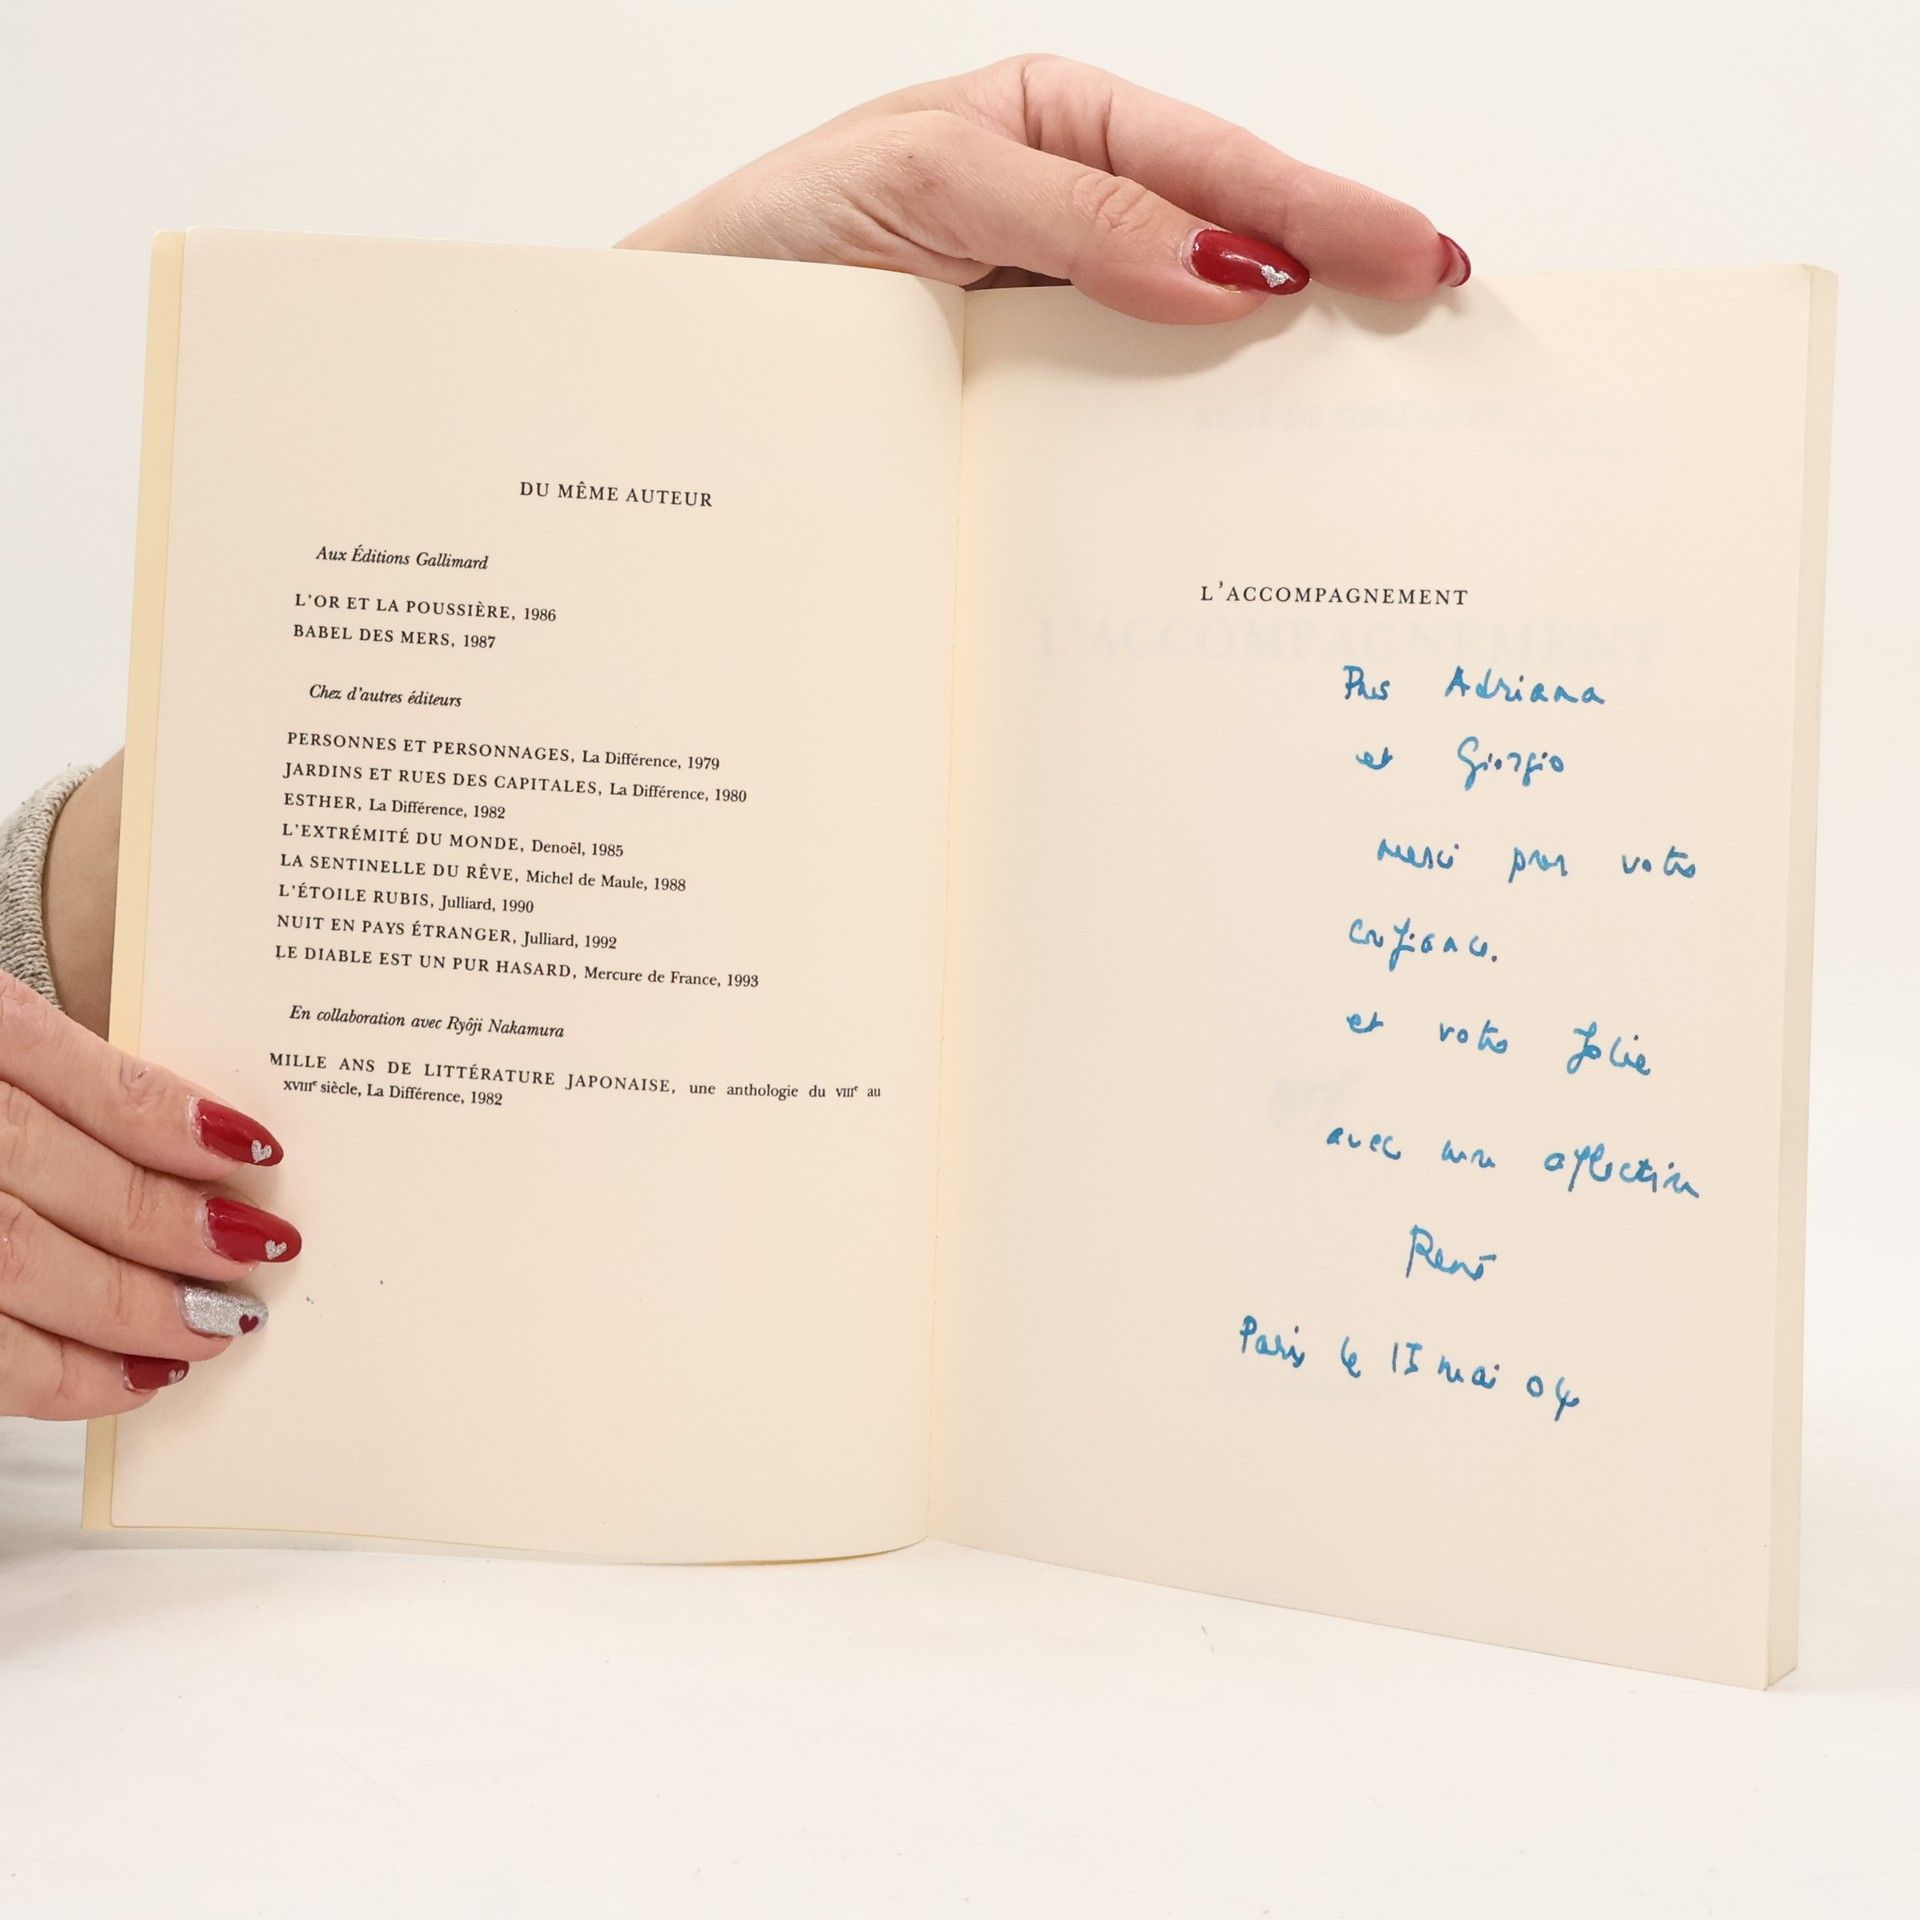 DU MÊME AUTEUR
Aux Éditions Gallimard
L'OR ET LA POUSSIÈRE, 1986
BABEL DES MERS, 1987
Chez d'autres éditeurs
PERSONNES ET PERSONNAGES, La Différence, 1979
JARDINS ET RUES DES CAPITALES, La Différence, 1980
ESTHER, La Différence, 1982
L'EXTRÉMITÉ DU MONDE, Denoël, 1985
LA SENTINELLE DU RÊVE, Michel de Maule, 1988
L'ÉTOILE RUBIS, Julliard, 1990
NUIT EN PAYS ÉTRANGER, Julliard, 1992
LE DIABLE EST UN PUR HASARD, Mercure de France, 1993
En collaboration avec Ryôji Nakamura
MILLE ANS DE LITTÉRATURE JAPONAISE, une anthologie du VIIIe au
XVIIIe siècle, La Différence, 1982
L'ACCOMPAGNEMENT
Pour Adriana
et Giorgio
merci pour votre
confiance.
et votre Jolie
avec mon affection
René
Paris le 15 mai 04